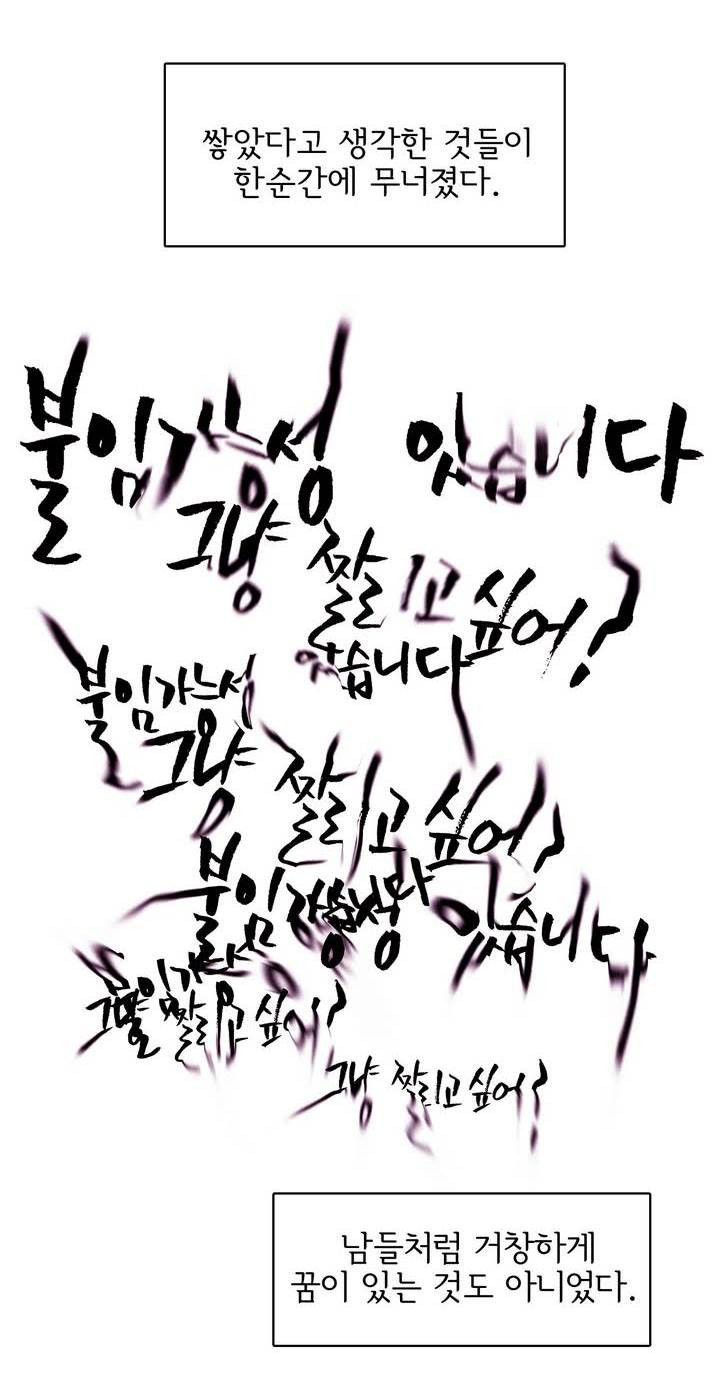 쌓았다고 생각한 것들이
한순간에 무너졌다.
불임가능성 있습니다
그냥 짤리고싶어?
불임가능성 있습니다
그냥 짤리고싶어?
불임가능성 있습니다
불임가능성
그냥 짤리고싶어?
그냥 짤리고싶어?
남들처럼 거창하게
꿈이 있는 것도 아니었다.